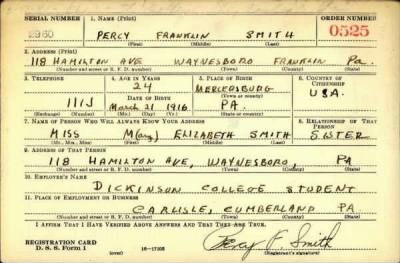 SERIAL NUMBER 1. NAME (Print) ORDER NUMBER
2960 PERCY FRANKLIN SMITH 0525
(First) (Middle) (Last)
2. ADDRESS (Print)
118 HAMILTON AVE WAYNESBORO FRANKLIN PA.
(Number and street or R. F. D. number) (Town) (County) (State)
3. TELEPHONE 4. AGE IN YEARS 5. PLACE OF BIRTH 6. COUNTRY OF CITIZENSHIP
24 MERCERSBURG
DATE OF BIRTH (Town or county) U.S.A.
111J March 21 1916 PA.
(Exchange) (No.) (Mo.) (Day) (Yr.) (State or country)
7. NAME OF PERSON WHO WILL ALWAYS KNOW YOUR ADDRESS 8. RELATIONSHIP OF THAT PERSON
MISS M(ary) ELIZABETH SMITH SISTER
(Mr., Mrs., Miss) (First) (Middle) (Last)
9. ADDRESS OF THAT PERSON
118 HAMILTON AVE, WAYNESBORO, PA
(Number and street or R. F. D. number) (Town) (County) (State)
10. EMPLOYER'S NAME
DICKINSON COLLEGE STUDENT
11. PLACE OF EMPLOYMENT OR BUSINESS
CARLISLE, CUMBERLAND PA.
(Number and street or R. F. D. number) (Town) (County) (State)
I AFFIRM THAT I HAVE VERIFIED ABOVE ANSWERS AND THAT THEY ARE TRUE.
REGISTRATION CARD Percy F. Smith
D. S. S. Form 1 (over) 16—17105 (Registrant's signature)